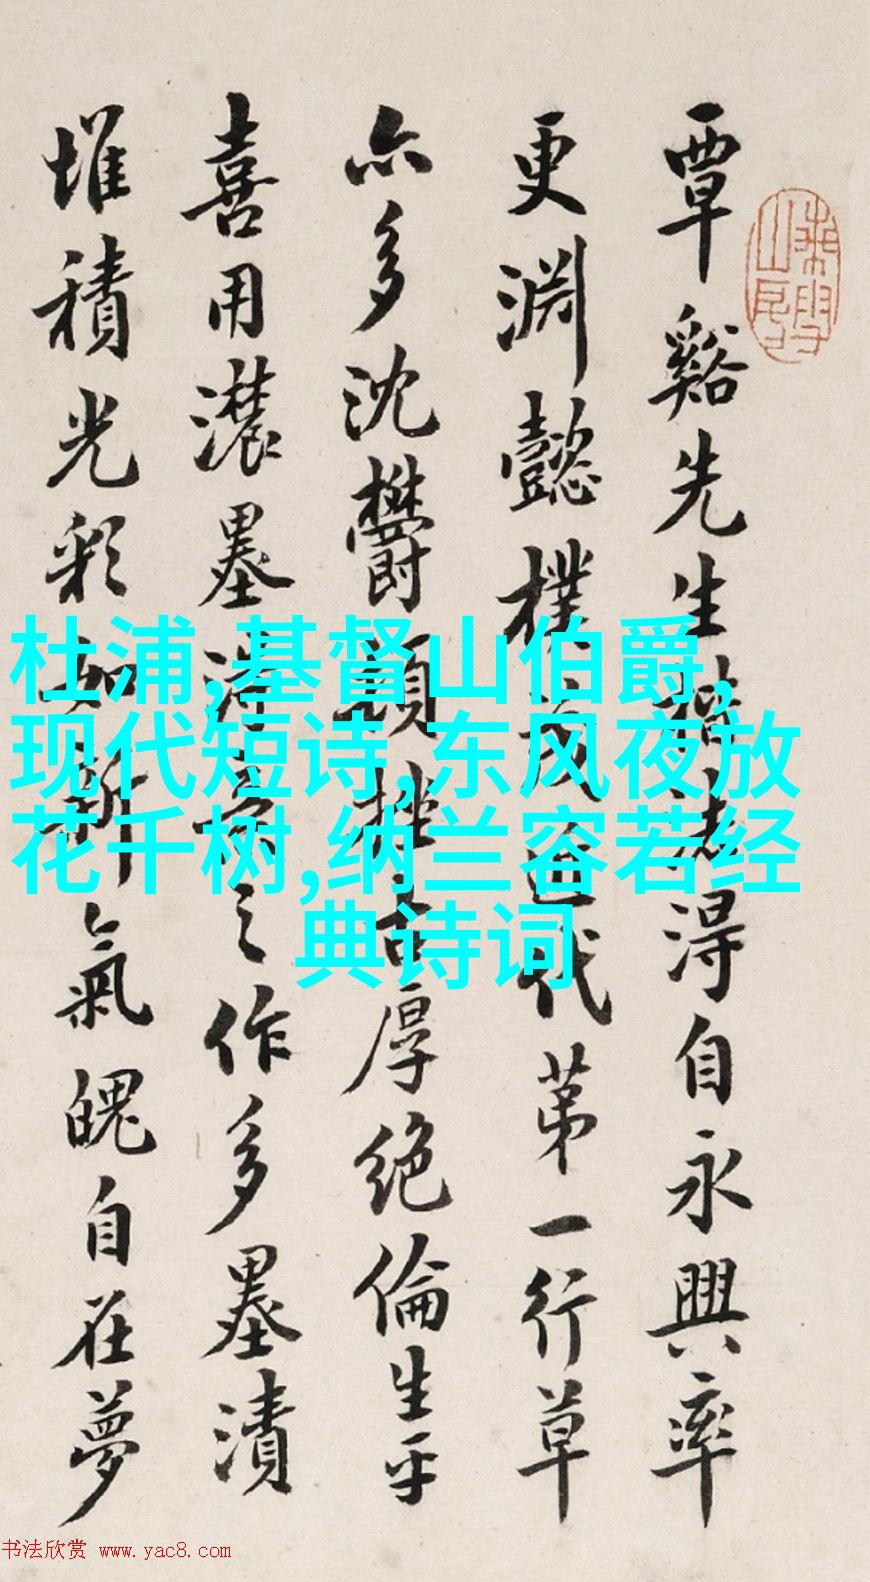 覃谿先生楷法得自永興率
更淵懿樸茂近代第一行草
亦多沈鬱頓挫古厚絶倫生平
喜用濃墨得意之作多墨漬
堆積光彩如新氣魄自在夢
杜浦,基督山伯爵,
现代短诗,东风夜放
花千树,纳兰容若经
典诗词
书法欣赏 www.yac8.com